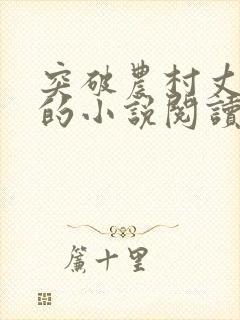 突破農村丈
的小說閱讀
簾十里